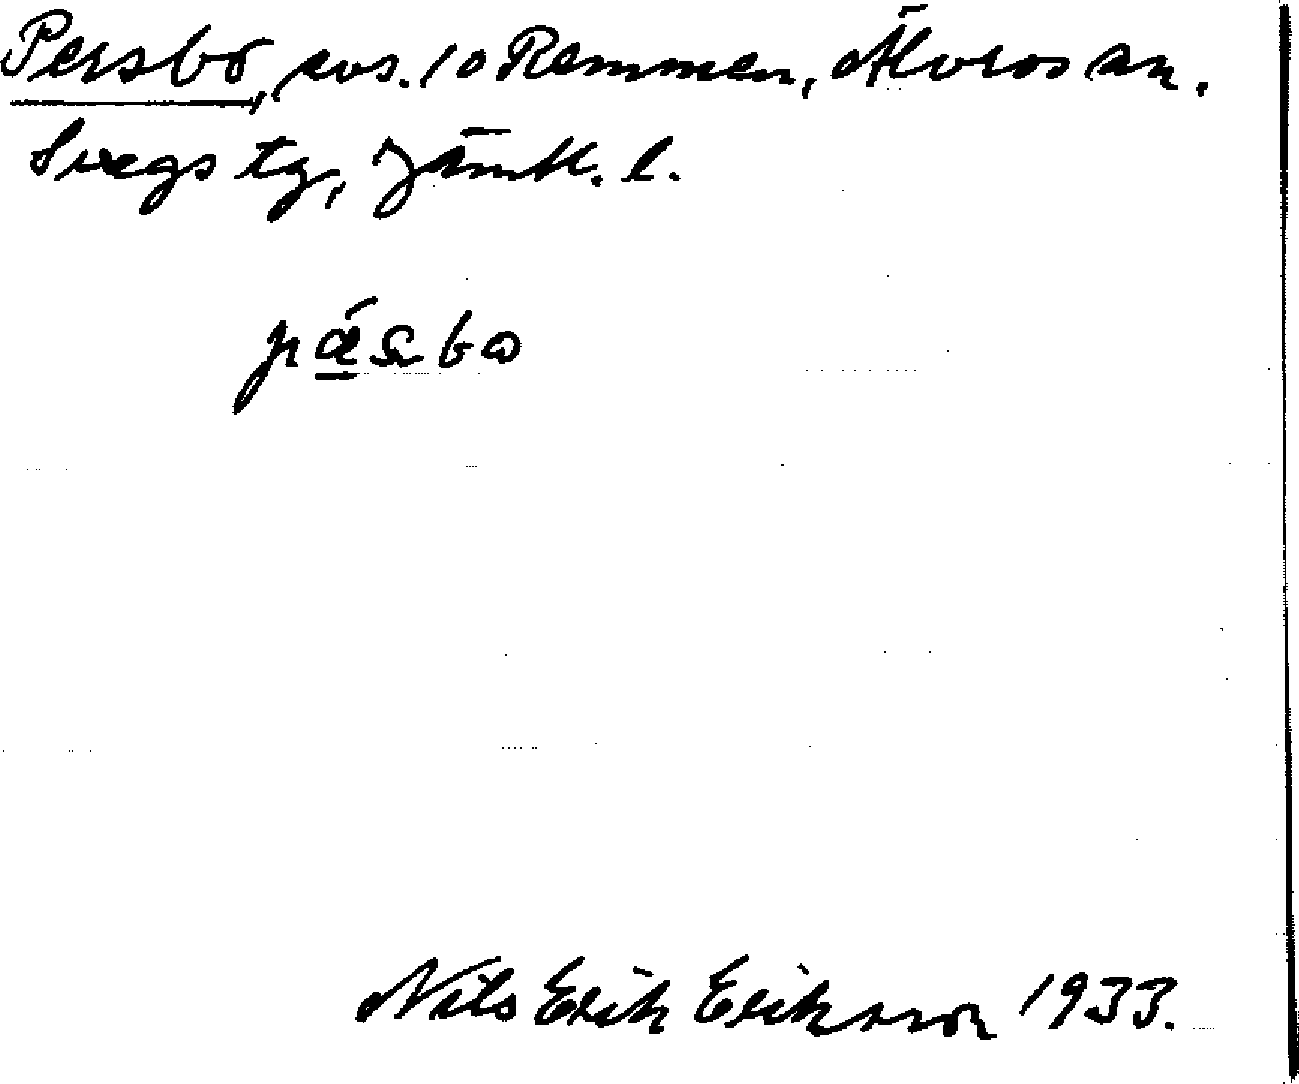 Persbo, avs. 10 Remmen, Älvros sn.
Svegs tg, Jämtl. l.
Nils Erik Eriksson 1933.